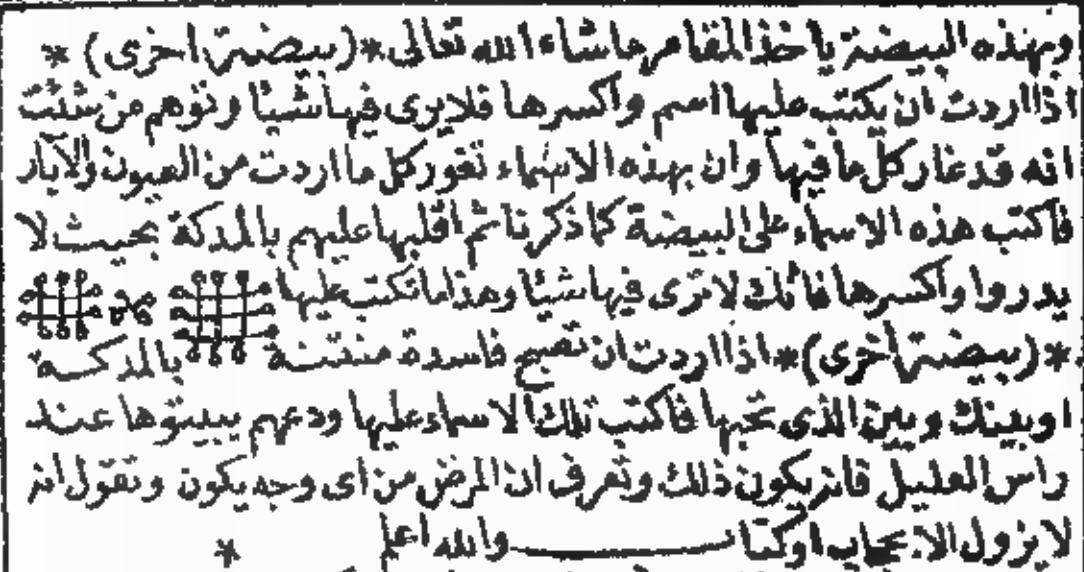 وبهذه البيضة ياخذ المقامر ماشاء الله تعالى *(بيضة اخرى) *
اذا اردت ان يكتب عليها اسم واكسرها فلايرى فيها شيئا وتوهم من شئت
انه قد غار كل ما فيها وان بهذه الاسماء تغور كل ما اردت من العيون والآبار
فاكتب هذه الاسماء على البيضة كما ذكرنا ثم اقلبها عليهم بالمدكة بحيث لا
يدروا واكسرها فانك لا ترى فيها شيئا وهذا ما تكتب عليها
*(بيضة اخرى)* اذا اردت ان تصبح فاسدة منتنة بالمدكة
او بينك وبين الذى تحبها فاكتب تلك الاسماء عليها ودعهم يبيتوها عند
راس العليل فانه يكون ذلك وتعرف ان المرض من اى وجه يكون وتقول انه
لا يزول الا بحجاب او كتاب والله اعلم *